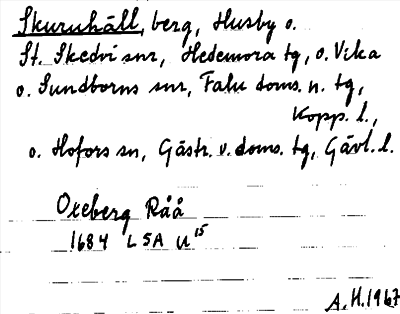 Skuruhäll, berg, Husby o.
St. Skedvi snr, Hedemora tg, o. Vika
o. Sundborns snr, Falu doms. n. tg,
Kopp. l.,
o. Hofors sn, Gästr. v. doms. tg, Gävl. l.
Oxeberg Råå
1684 LSA U 15
A.H. 1967